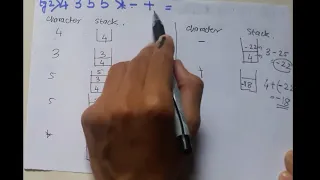 eg2) 4 3 5 5 * - + =
character stack
character stack
4
4
3
3
4
5
5
3
4
5
*
-
-22
4
3-25
-22
+
-18
4+(-22
=-18